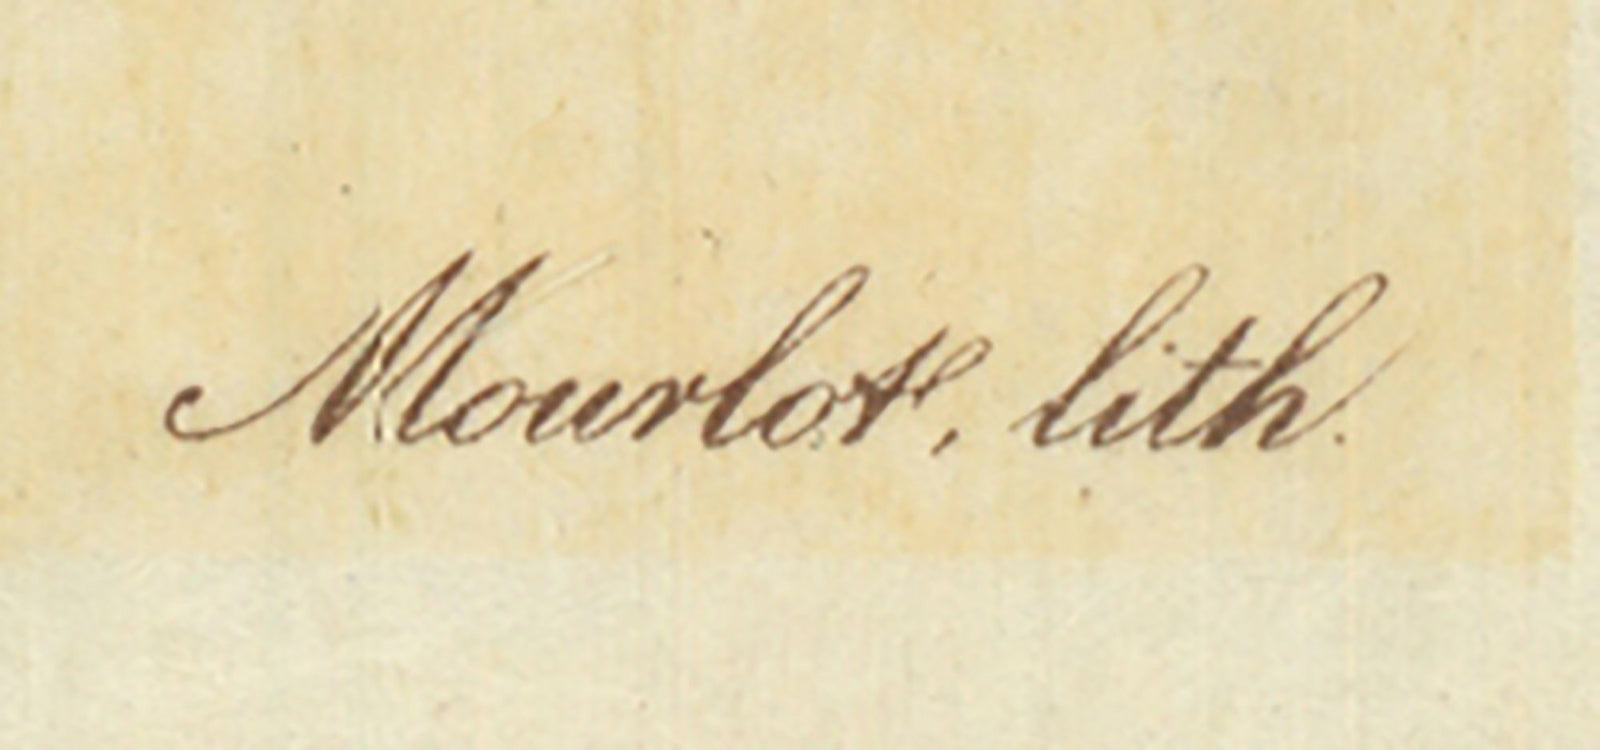 Mourlot, lith.